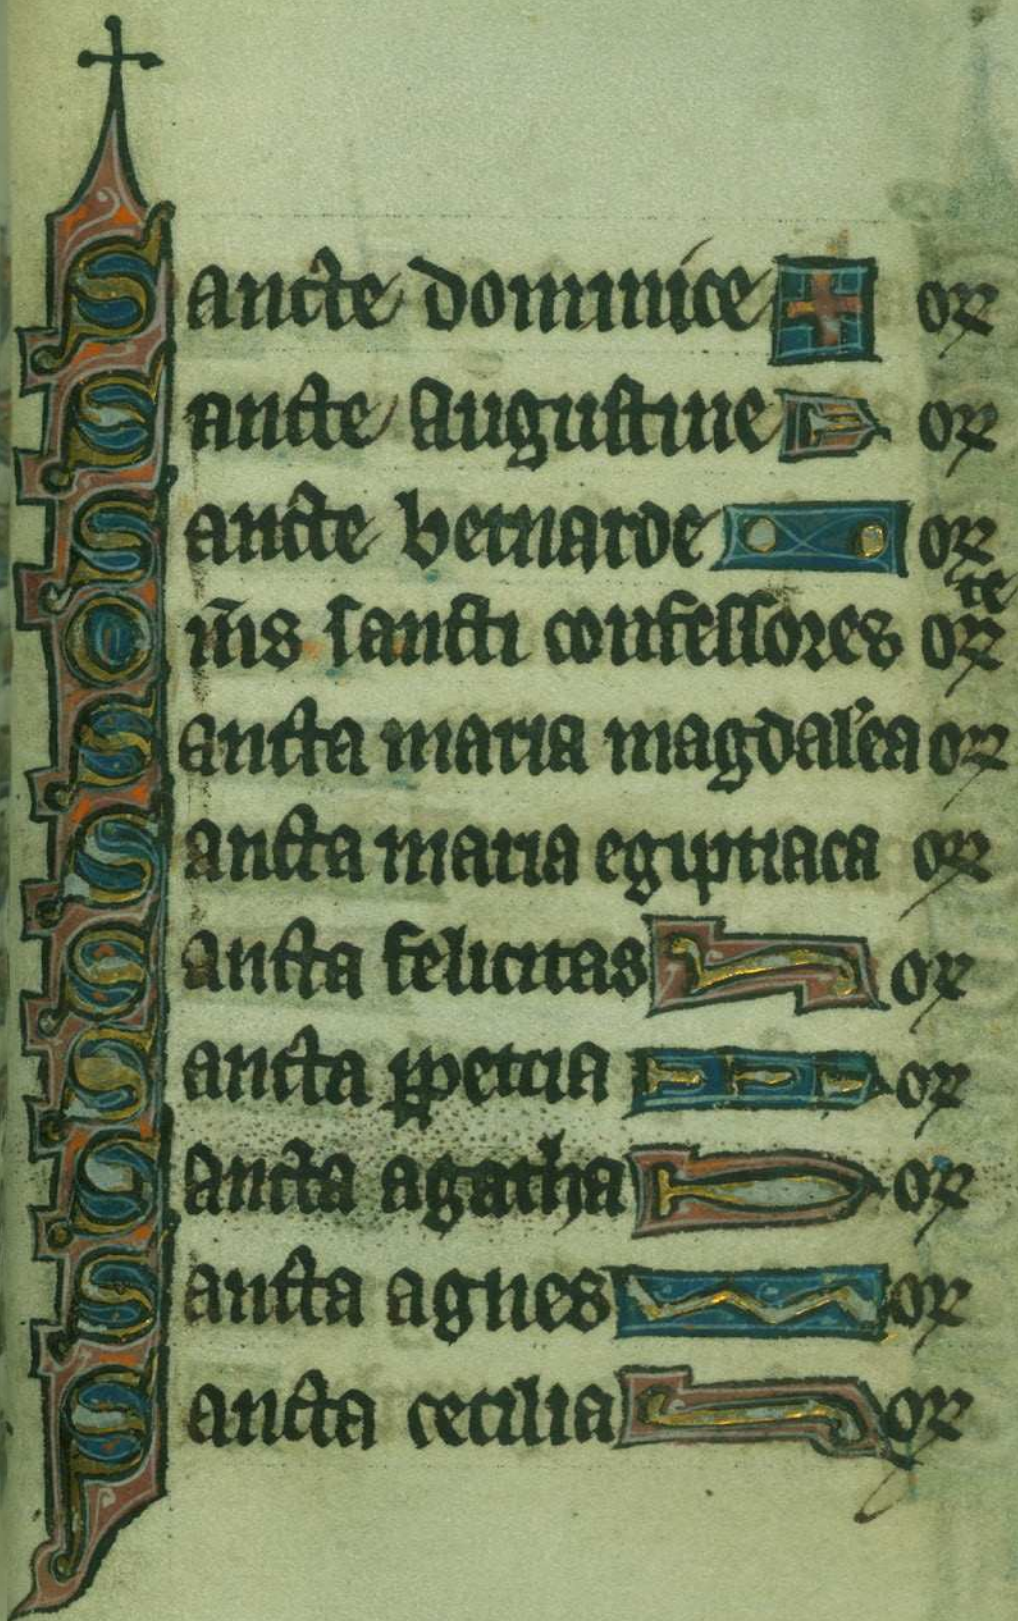 Sancte dominice or
Sancte augustine or
Sancte bernarde or
Om̄s sancti confessores orte
Sancta maria magdal'ea or
Sancta maria egiptiaca or
Sancta felicitas or
Sancta ꝑpetua or
Sancta agatha or
Sancta agnes or
Sancta cecilia or